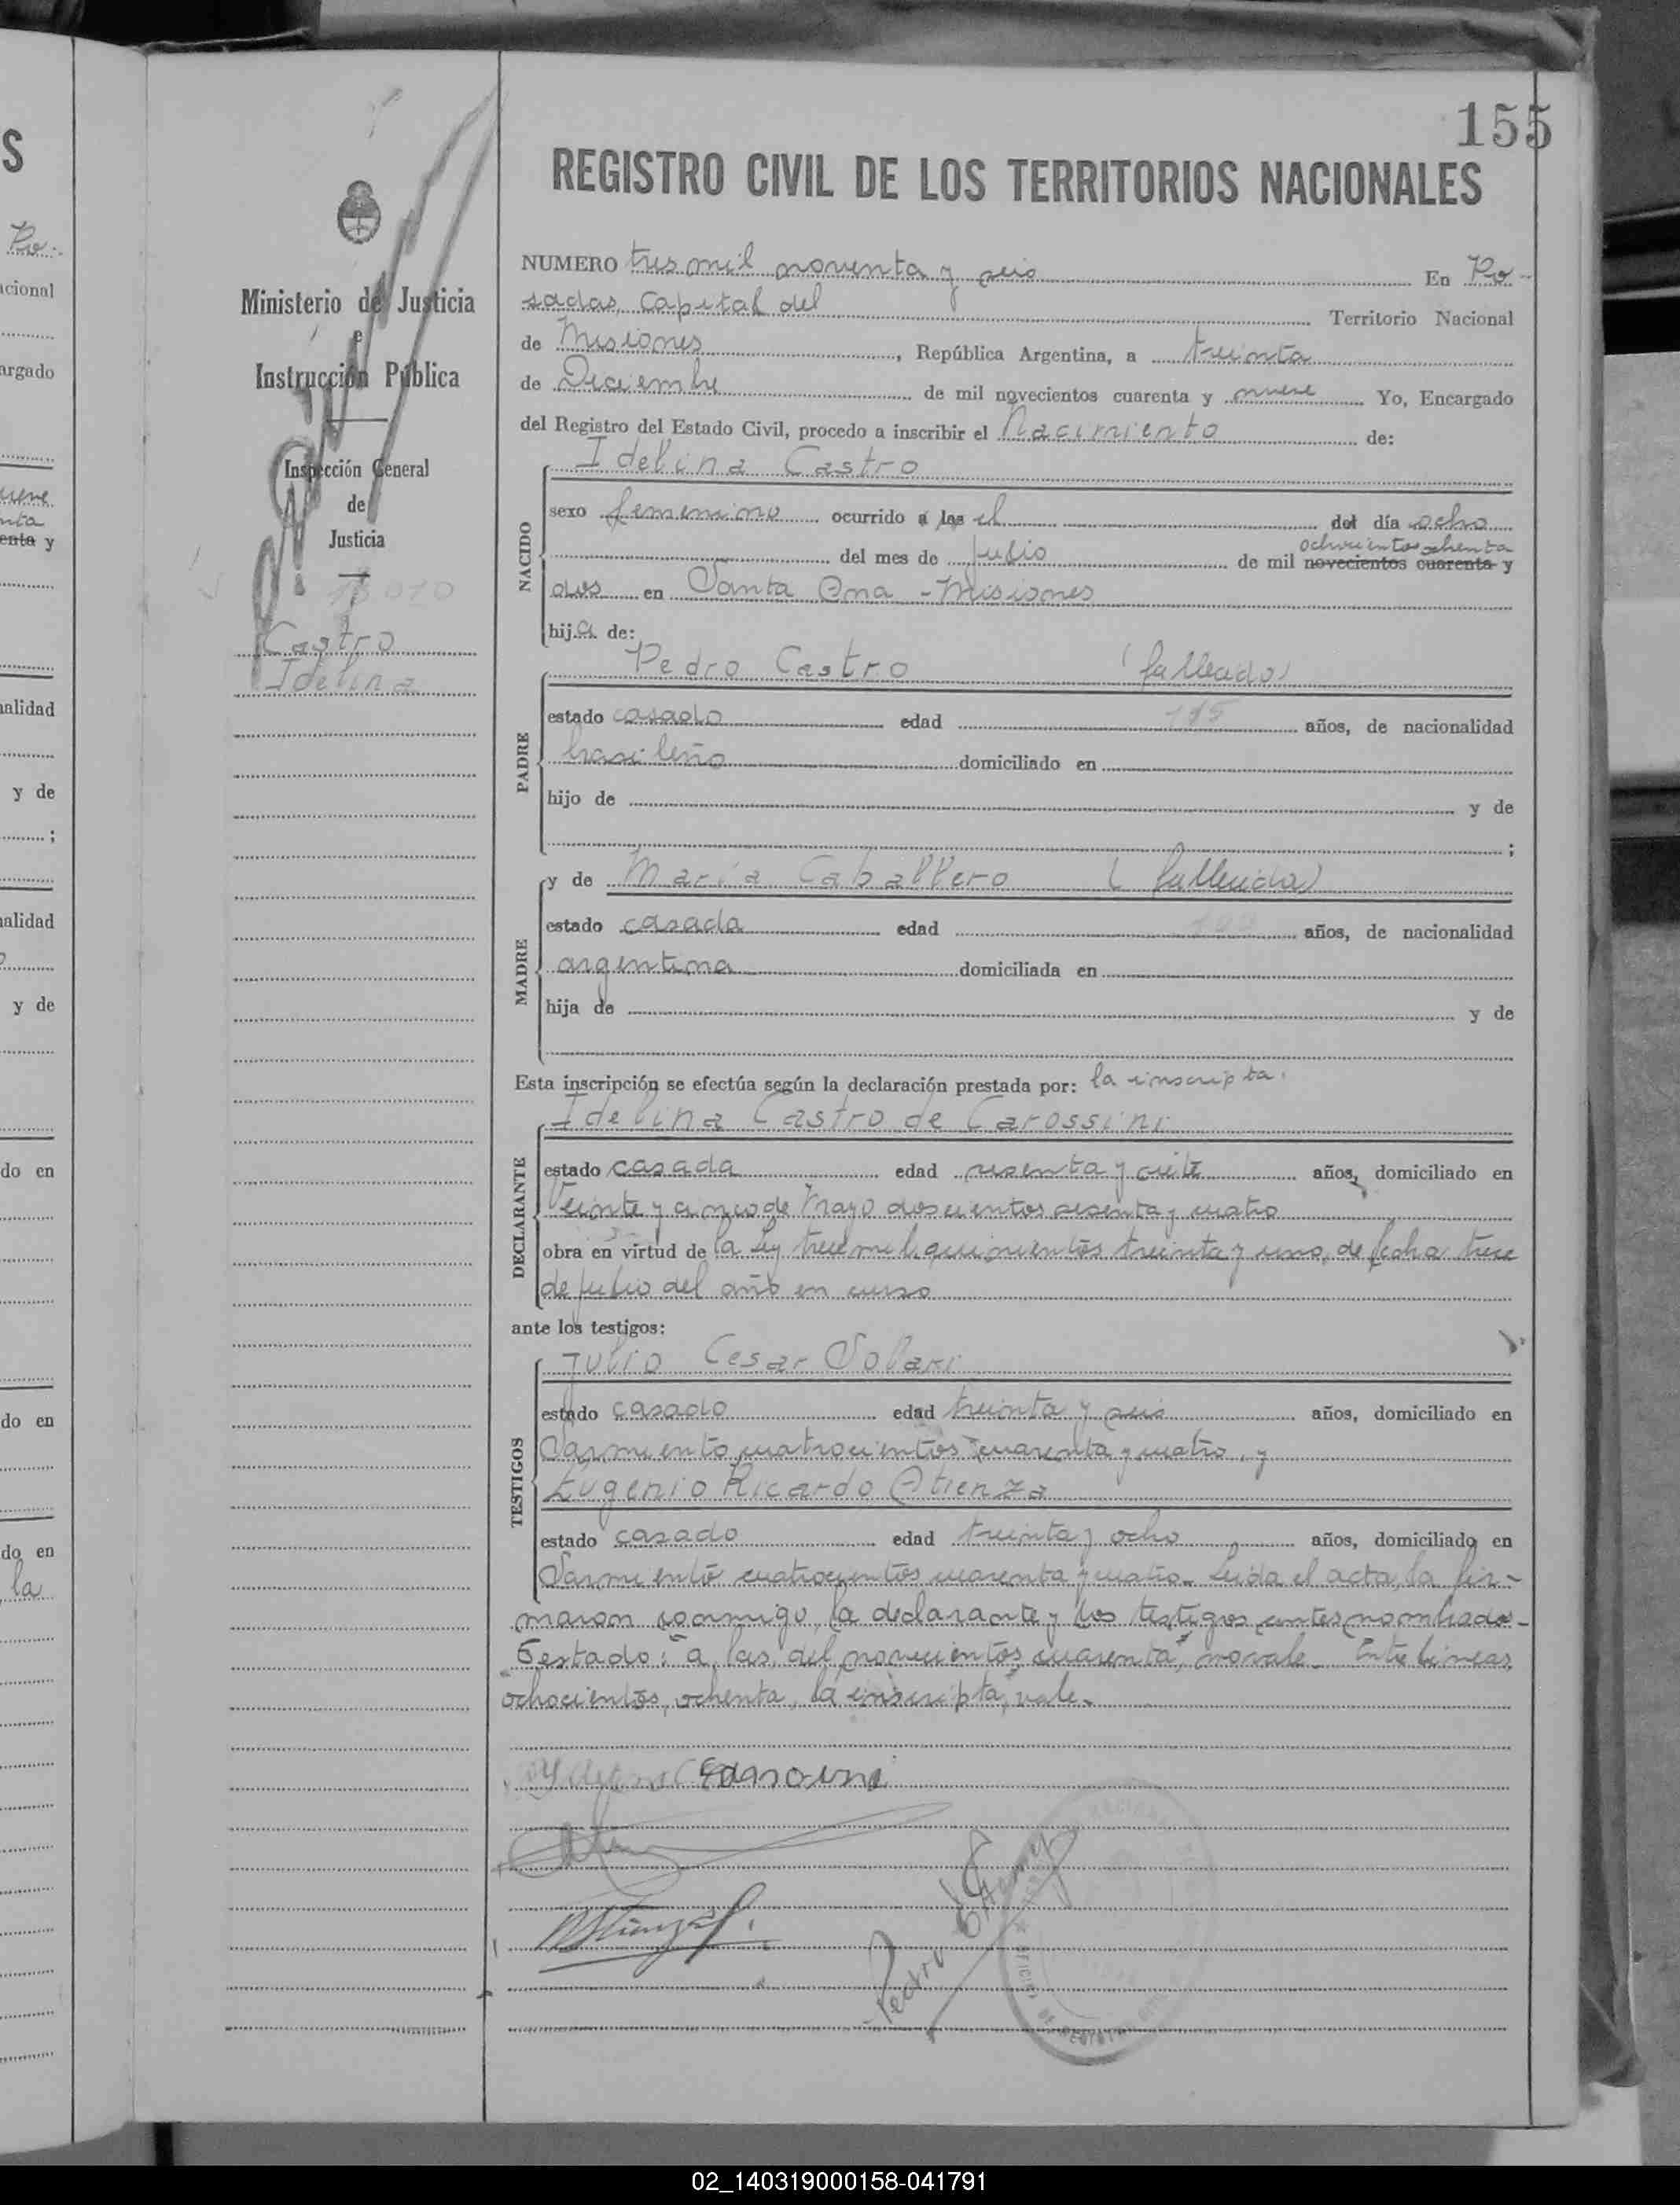 155
REGISTRO CIVIL DE LOS TERRITORIOS NACIONALES
NUMERO tres mil noventa y seis En Po-
sadas, Capital del Territorio Nacional
de Misiones, República Argentina, a treinta
de Diciembre de mil novecientos cuarenta y nueve Yo, Encargado
del Registro del Estado Civil, procedo a inscribir el Nacimiento de:
Ministerio de Justicia
e
Instrucción Pública
Inspección General
de
Justicia
Castro
Idelina
NACIDO
Idelina Castro
sexo femenino ocurrido a las el del día ocho
ochocientos ochenta
del mes de Julio de mil novecientos cuarenta y
dos en Santa Ana - Misiones
hija de:
PADRE
Pedro Castro (fallecido)
estado casado edad años, de nacionalidad
brasileño domiciliado en
hijo de y de
;
MADRE
y de Maria Caballero (fallecida)
estado casada edad años, de nacionalidad
argentina domiciliada en
hija de y de
Esta inscripción se efectúa según la declaración prestada por: la inscripta.
DECLARANTE
Idelina Castro de Carossini
estado casada edad sesenta y siete años, domiciliado en
Veinte y cinco de Mayo doscientos sesenta y cuatro
obra en virtud de la ley trece mil quinientos treinta y uno, de fecha trece
de julio del año en curso
ante los testigos:
TESTIGOS
Julio Cesar Solari
estado casado edad treinta y seis años, domiciliado en
Sarmiento cuatrocientos cuarenta y cuatro, y
Eugenio Ricardo Atienza
estado casado edad treinta y ocho años, domiciliado en
Sarmiento cuatrocientos cuarenta y cuatro. Leida el acta, la fir-
maron conmigo, la declarante y los testigos antes nombrados-
Testado: "a las, del, novecientos, cuarenta", no vale. Entre lineas,
ochocientos, ochenta, la inscripta, vale.
S
Po-
acional
argado
nueve
enta y
nalidad
y de
;
nalidad
y de
do en
do en
do en
la
02_140319000158-041791